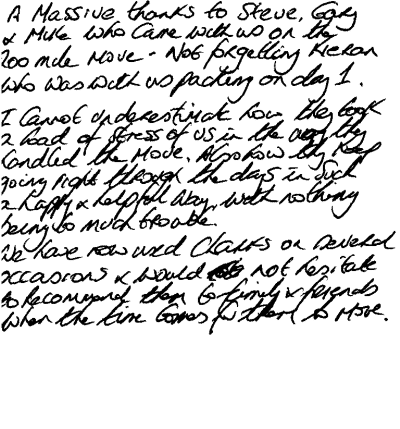 A Massive thanks to Steve, Gary
& Mike who came with us on the
200 mile move - Not forgetting Kieran
who was with us packing on day 1.
I cannot underestimate how they took
a load of stress of us in the way they
handled the move. Also how they keep
going right through the days in such
a happy & helpful way, with nothing
being to much trouble.
We have now used Clarks on several
occasions & would not hesitate
to recommend them to family & friends
when the time comes for them to move.